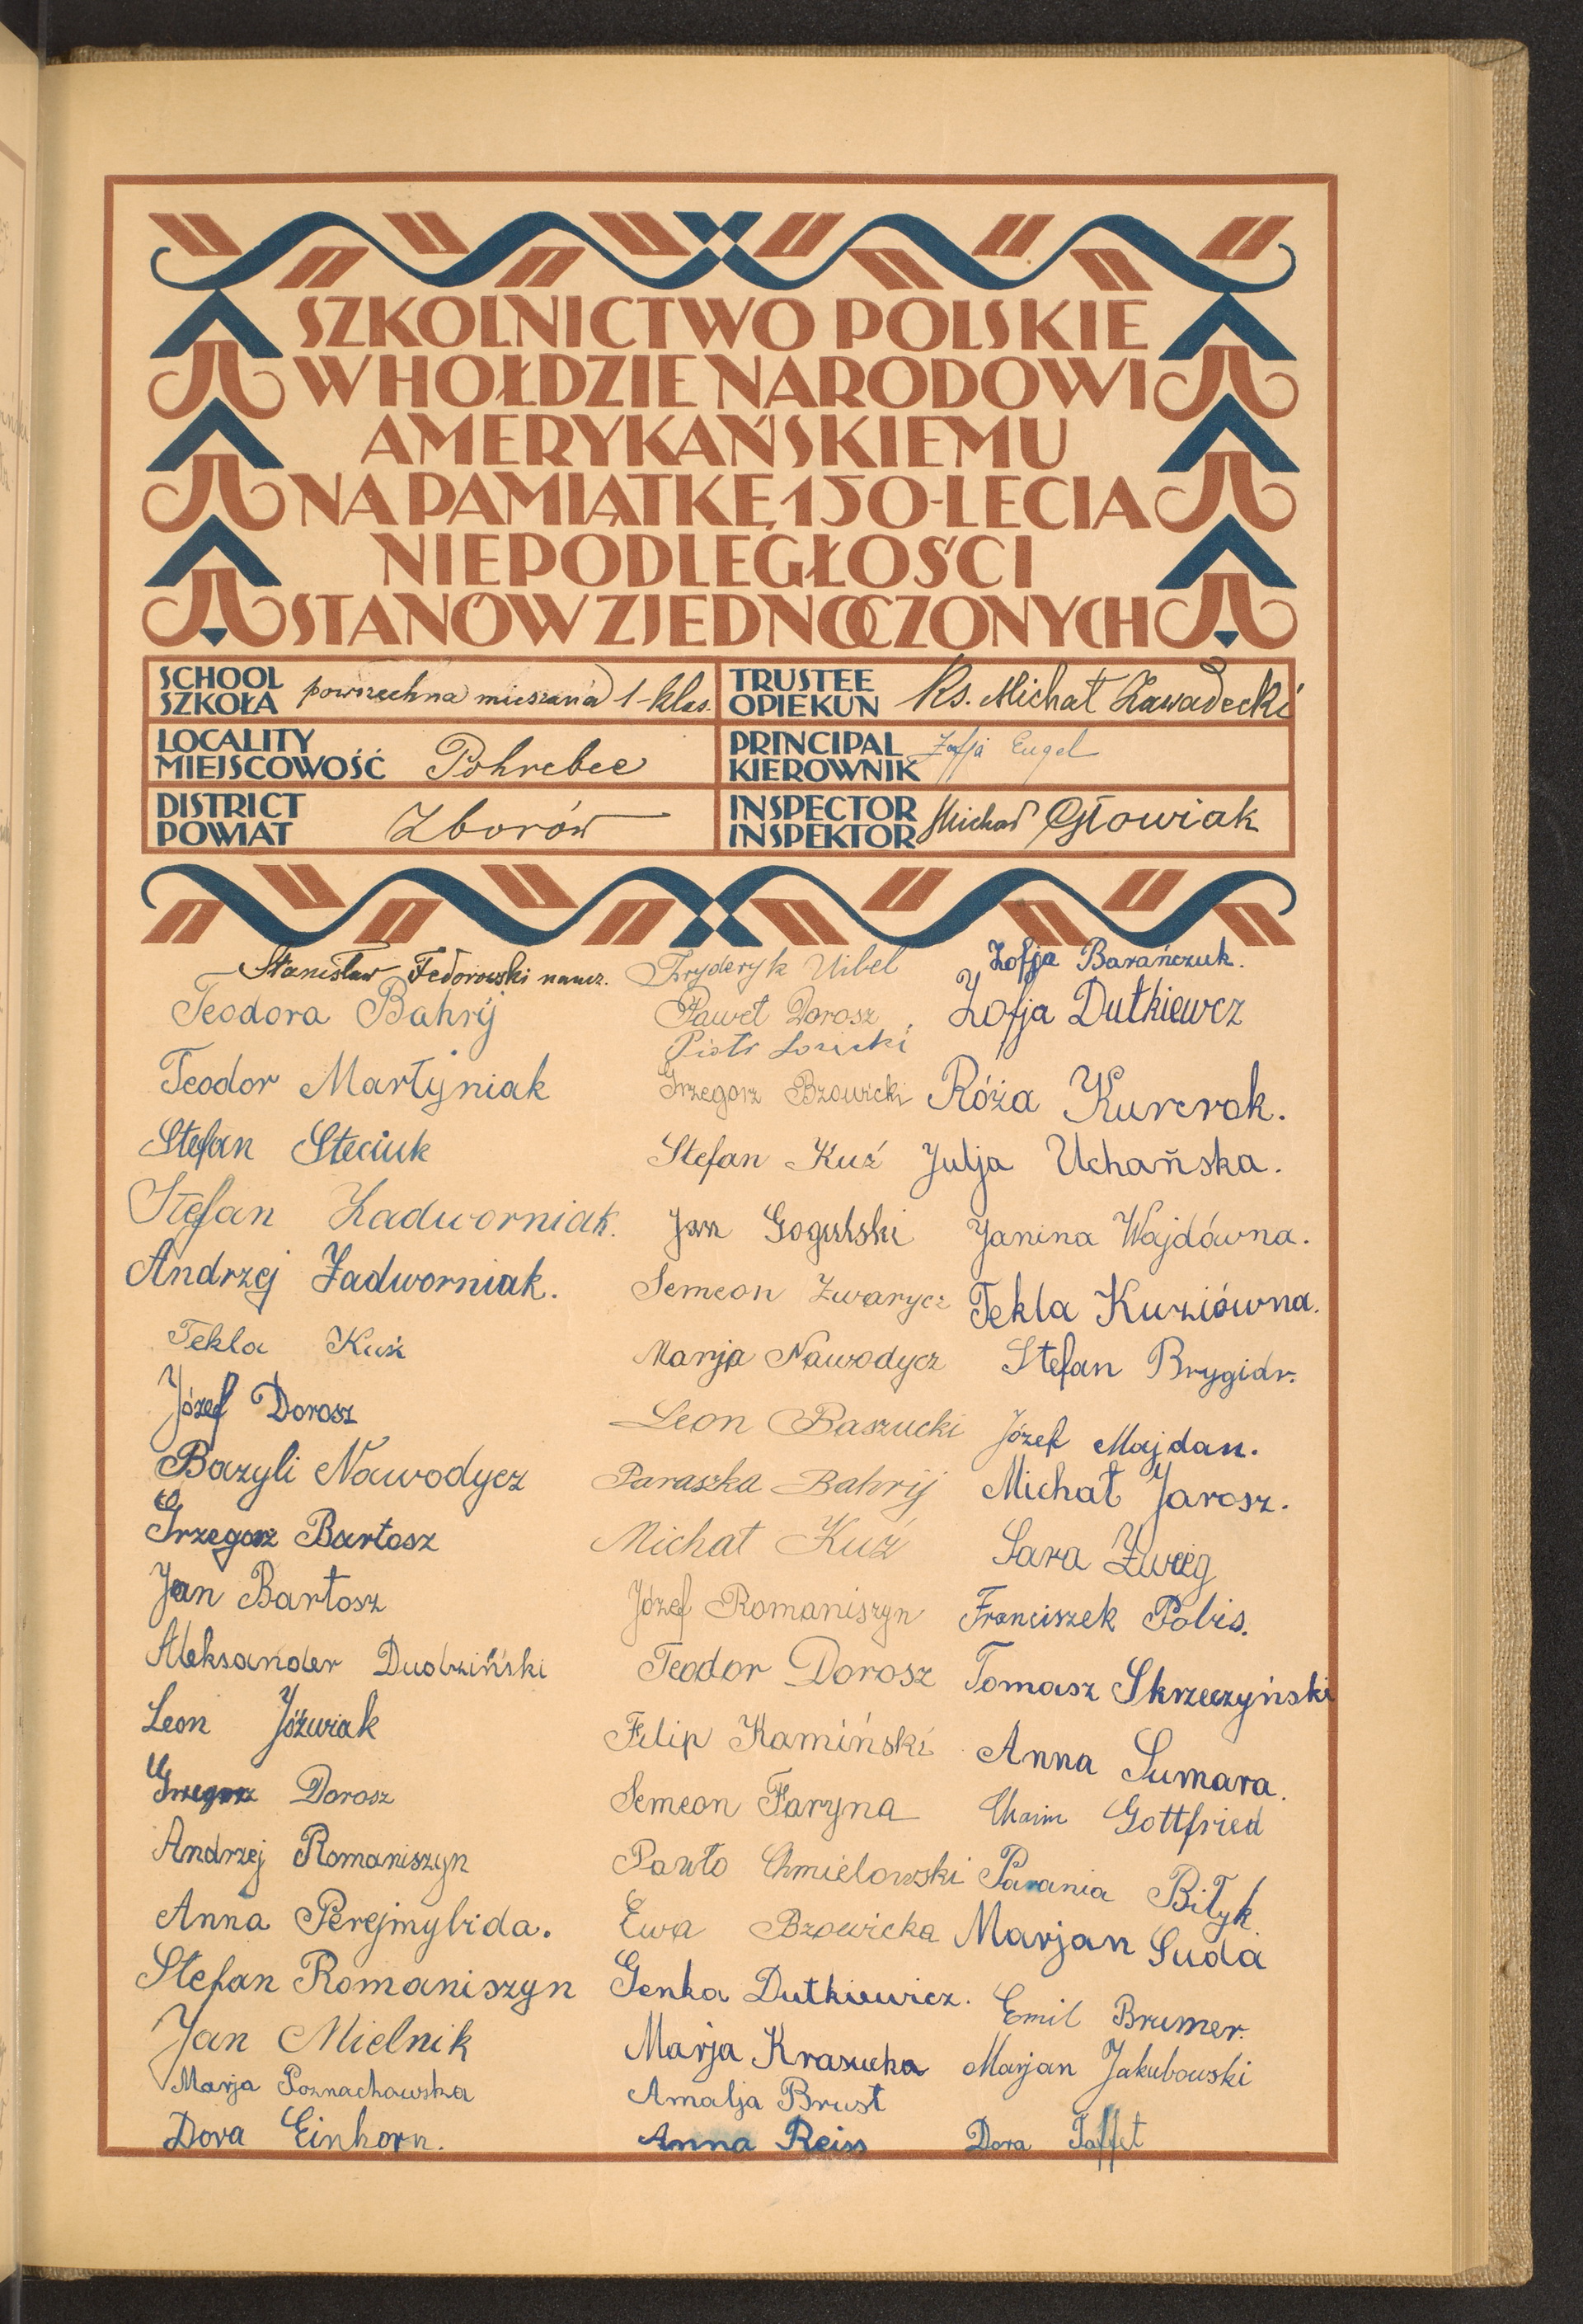 SZKOLNICTWO POLSKIE
W HOŁDZIE NARODOWI
AMERYKAŃSKIEMU
NA PAMIĄTKĘ 150-LECIA
NIEPODLEGŁOŚCI
STANÓW ZJEDNOCZONYCH
SCHOOL
SZKOŁA powszechna mieszana 1-klas.
TRUSTEE
OPIEKUN Ks. Michał Zawadecki
LOCALITY
MIEJSCOWOŚĆ Pohrebce
PRINCIPAL
KIEROWNIK Zofja Engel
DISTRICT
POWIAT Zborów
INSPECTOR
INSPEKTOR Michał Głowiak
Stanisław Fedorowski naucz.
Teodora Bahrij
Teodor Martyniak
Stefan Steciuk
Stefan Zadworniak.
Andrzej Zadworniak.
Tekla Kuź
Józef Dorosz
Bazyli Nawodycz
Grzegorz Bartosz
Jan Bartosz
Aleksander Dudziński
Leon Jóźwiak
Grzegorz Dorosz
Andrzej Romaniszyn
Anna Perejmybida.
Stefan Romaniszyn
Jan Mielnik
Marja Poznachowska
Dora Einhorn.
Fryderyk Uibel
Paweł Dorosz
Piotr Łozicki
Grzegorz Bzowicki
Stefan Kuź
Jan Gogulski
Semeon Zwarycz
Marja Nawodycz
Leon Baszucki
Paraszka Bahrij
Michał Kuź
Józef Romaniszyn
Teodor Dorosz
Filip Kamiński
Semeon Faryna
Pawło Chmielowski
Ewa Bzowicka
Genka Dutkiewicz.
Marja Krasucka
Amalja Brust
Anna Reiss
Zofja Barańczuk.
Zofja Dutkiewcz
Róża Kurcrok.
Julja Uchańska.
Janina Wajdówna.
Tekla Kuziówna.
Stefan Brygidr.
Józef Majdan.
Michał Jarosz.
Sara Zweig
Franciszek Pobis.
Tomasz Skrzeczyński
Anna Sumara.
Chaim Gottfried
Parania Biłyk
Marjan Suda
Emil Brumer.
Marjan Jakubowski
Dora Taffet